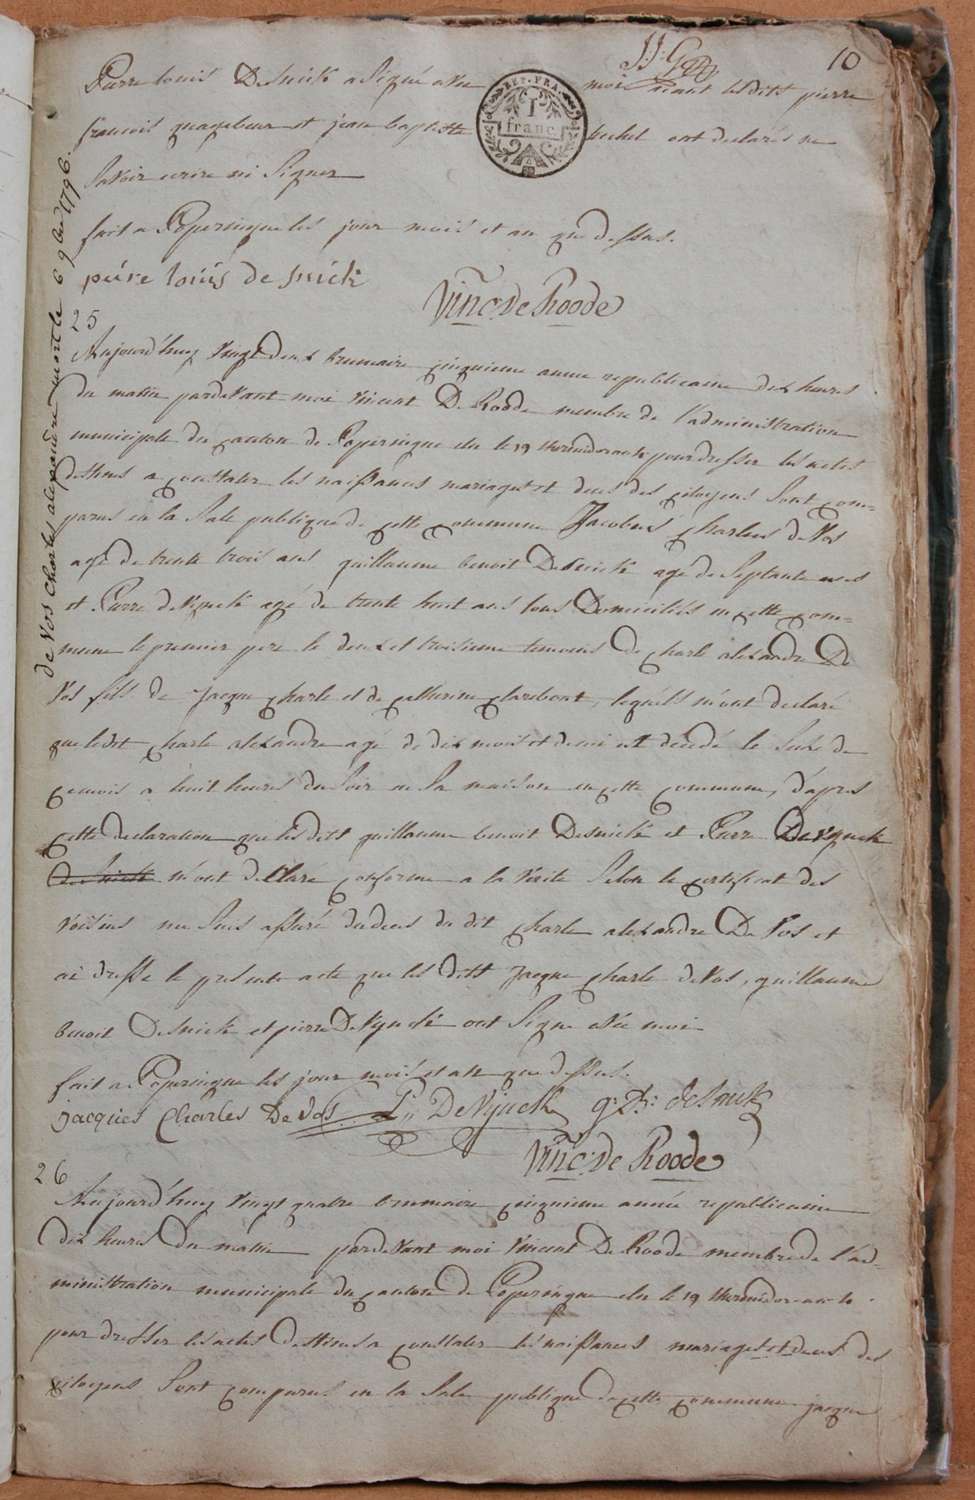 10
Pierre Louis Desnick a Signé avec moi niant lesdits pierre
francois quagebeur et jean baptiste bechel ont declarés ne
Savoir ecrire ni Signer
fait a Poperingue les jour mois et an que dessus.
piére loúis de snick
Vinc. De Roode
REP. FRA.
1
franc
de Vos Charles alexandre mort le 6 9bre 1796.
25
Aujourd'huy Vingt deux brumaire cinquieme annee republicaine dix heures
du matin pardevant moi Vincent De Roode membre de l'administration
municipale du canton de Poperingue elu le 19 thermidor an 4 pour dresser les actes
destines a constater les naissances mariages et deces des citoyens Sont com=
parus en la Sale publique de cette commune Jacobus Charles de Vos
agé de trente trois ans guillaume benoit Desnick agé de Septante ans
et Pierre devynck agé de trente huit ans tous Domiciliés en cette com=
mune le premier pere le deux et troisieme temoins de charle alexandre De
Vos fils de Jacque charle et de Catherine Clarebout, lequels m'ont declaré
que ledit charle alexandre agé de dix mois et demi est décédé le Seize de
ce mois a huit heures du Soir en Sa maison en cette commune, d'apres
cette declaration que lesdits guillaume benoit Desnick et Pierre Devynck
de Snick m'ont declaré conforme a la Verité Selon le certificat des
voisins me Suis assuré du deces du dit charle alexandre De Vos et
ai dressé le presente acte que les dits Jacque charle de Vos, guillaume
benoit Desnick et pierre Devyncke ont Signe avec moi
fait a Poperingue les jour mois et an que dessus.
Jacques Charles De Vos P. DeVynck g: B: deSnick
Vinc. De Roode
26
Aujourd'huy Vingt quatre brumaire cinquieme année republicaine
dix heures du matin pardevant moi Vincent De Roode membre de l'ad=
ministration municipale du canton de Poperingue elu le 19 thermidor an 4
pour dresser les actes destines a constater les naissances mariages et deces des
citoyens Sont comparus en la Sale publique de cette commune jacque